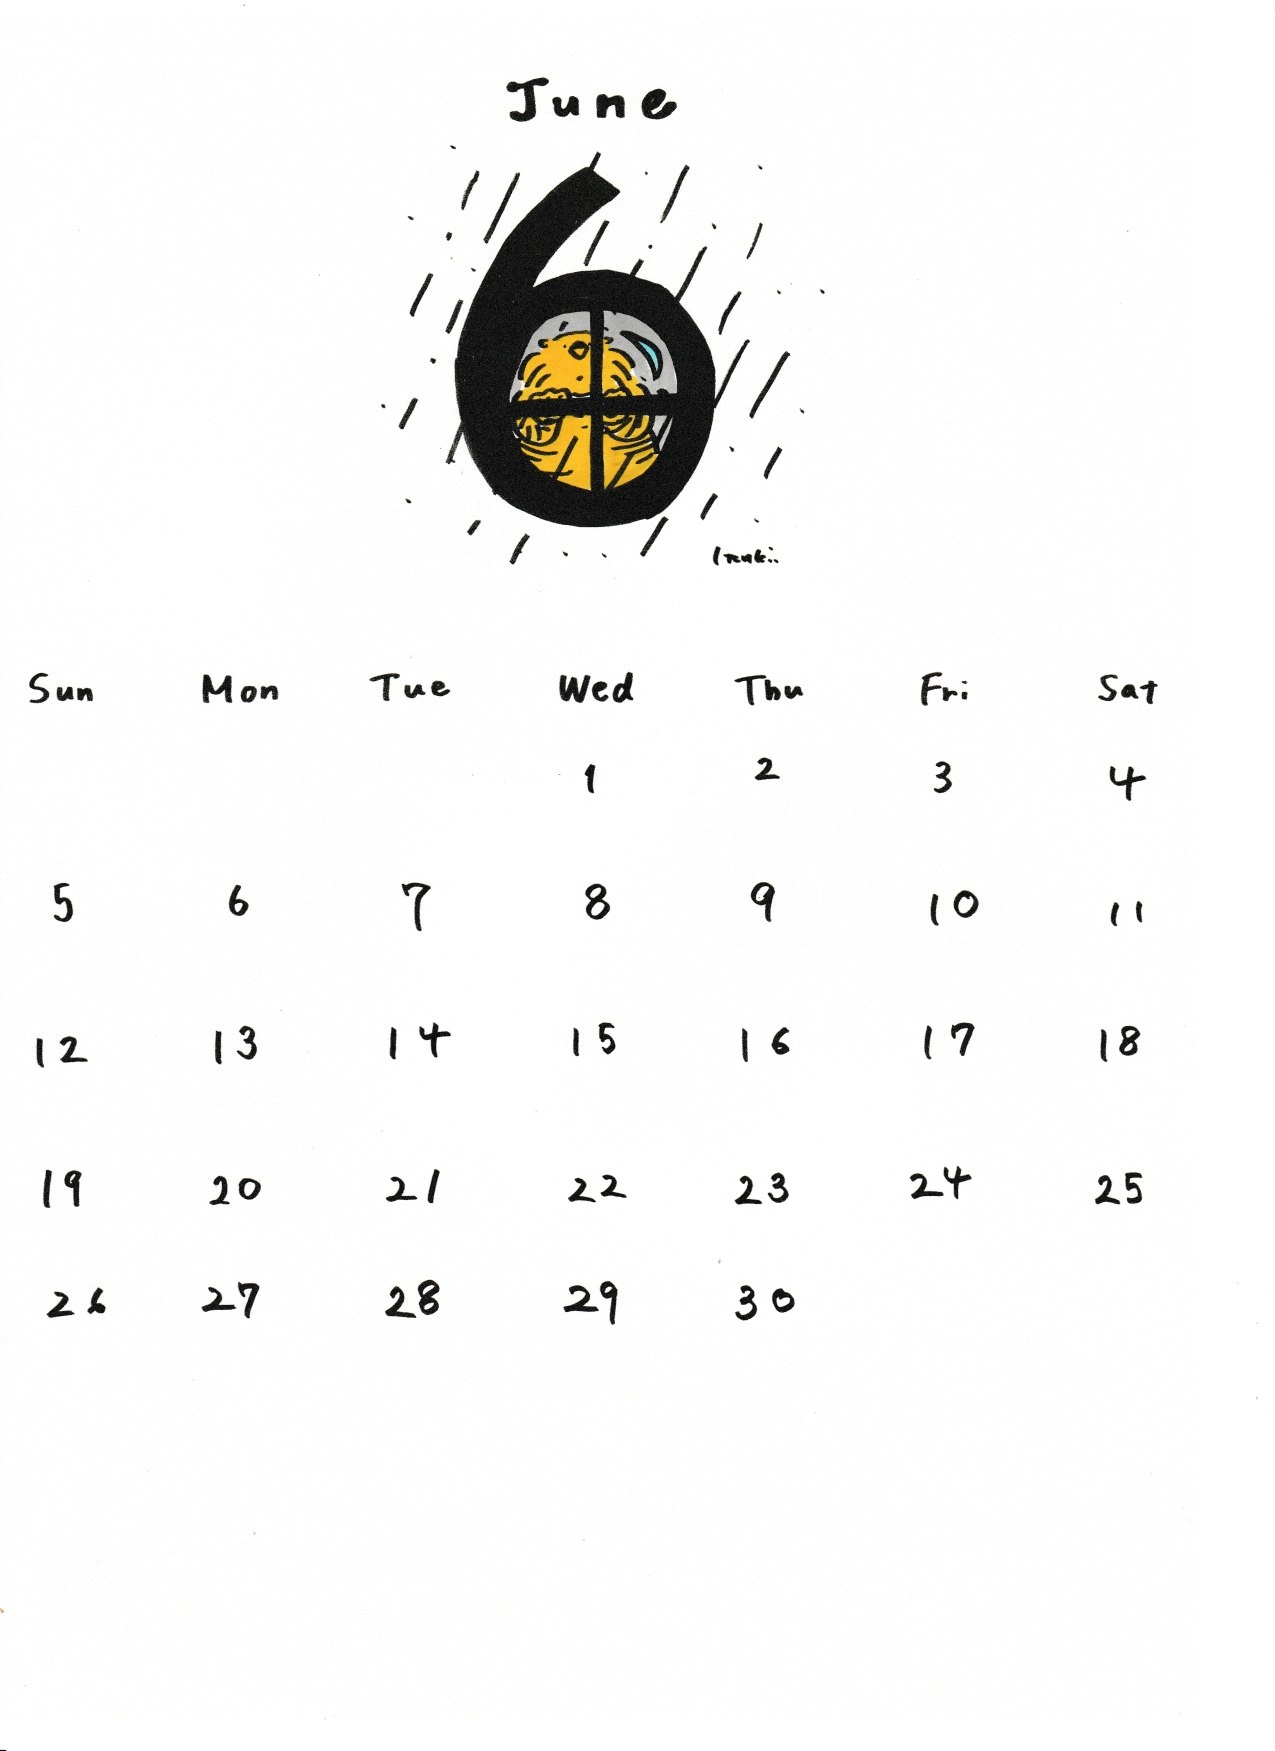 June
6
Sun Mon Tue Wed Thu Fri Sat
1 2 3 4
5 6 7 8 9 10 11
12 13 14 15 16 17 18
19 20 21 22 23 24 25
26 27 28 29 30